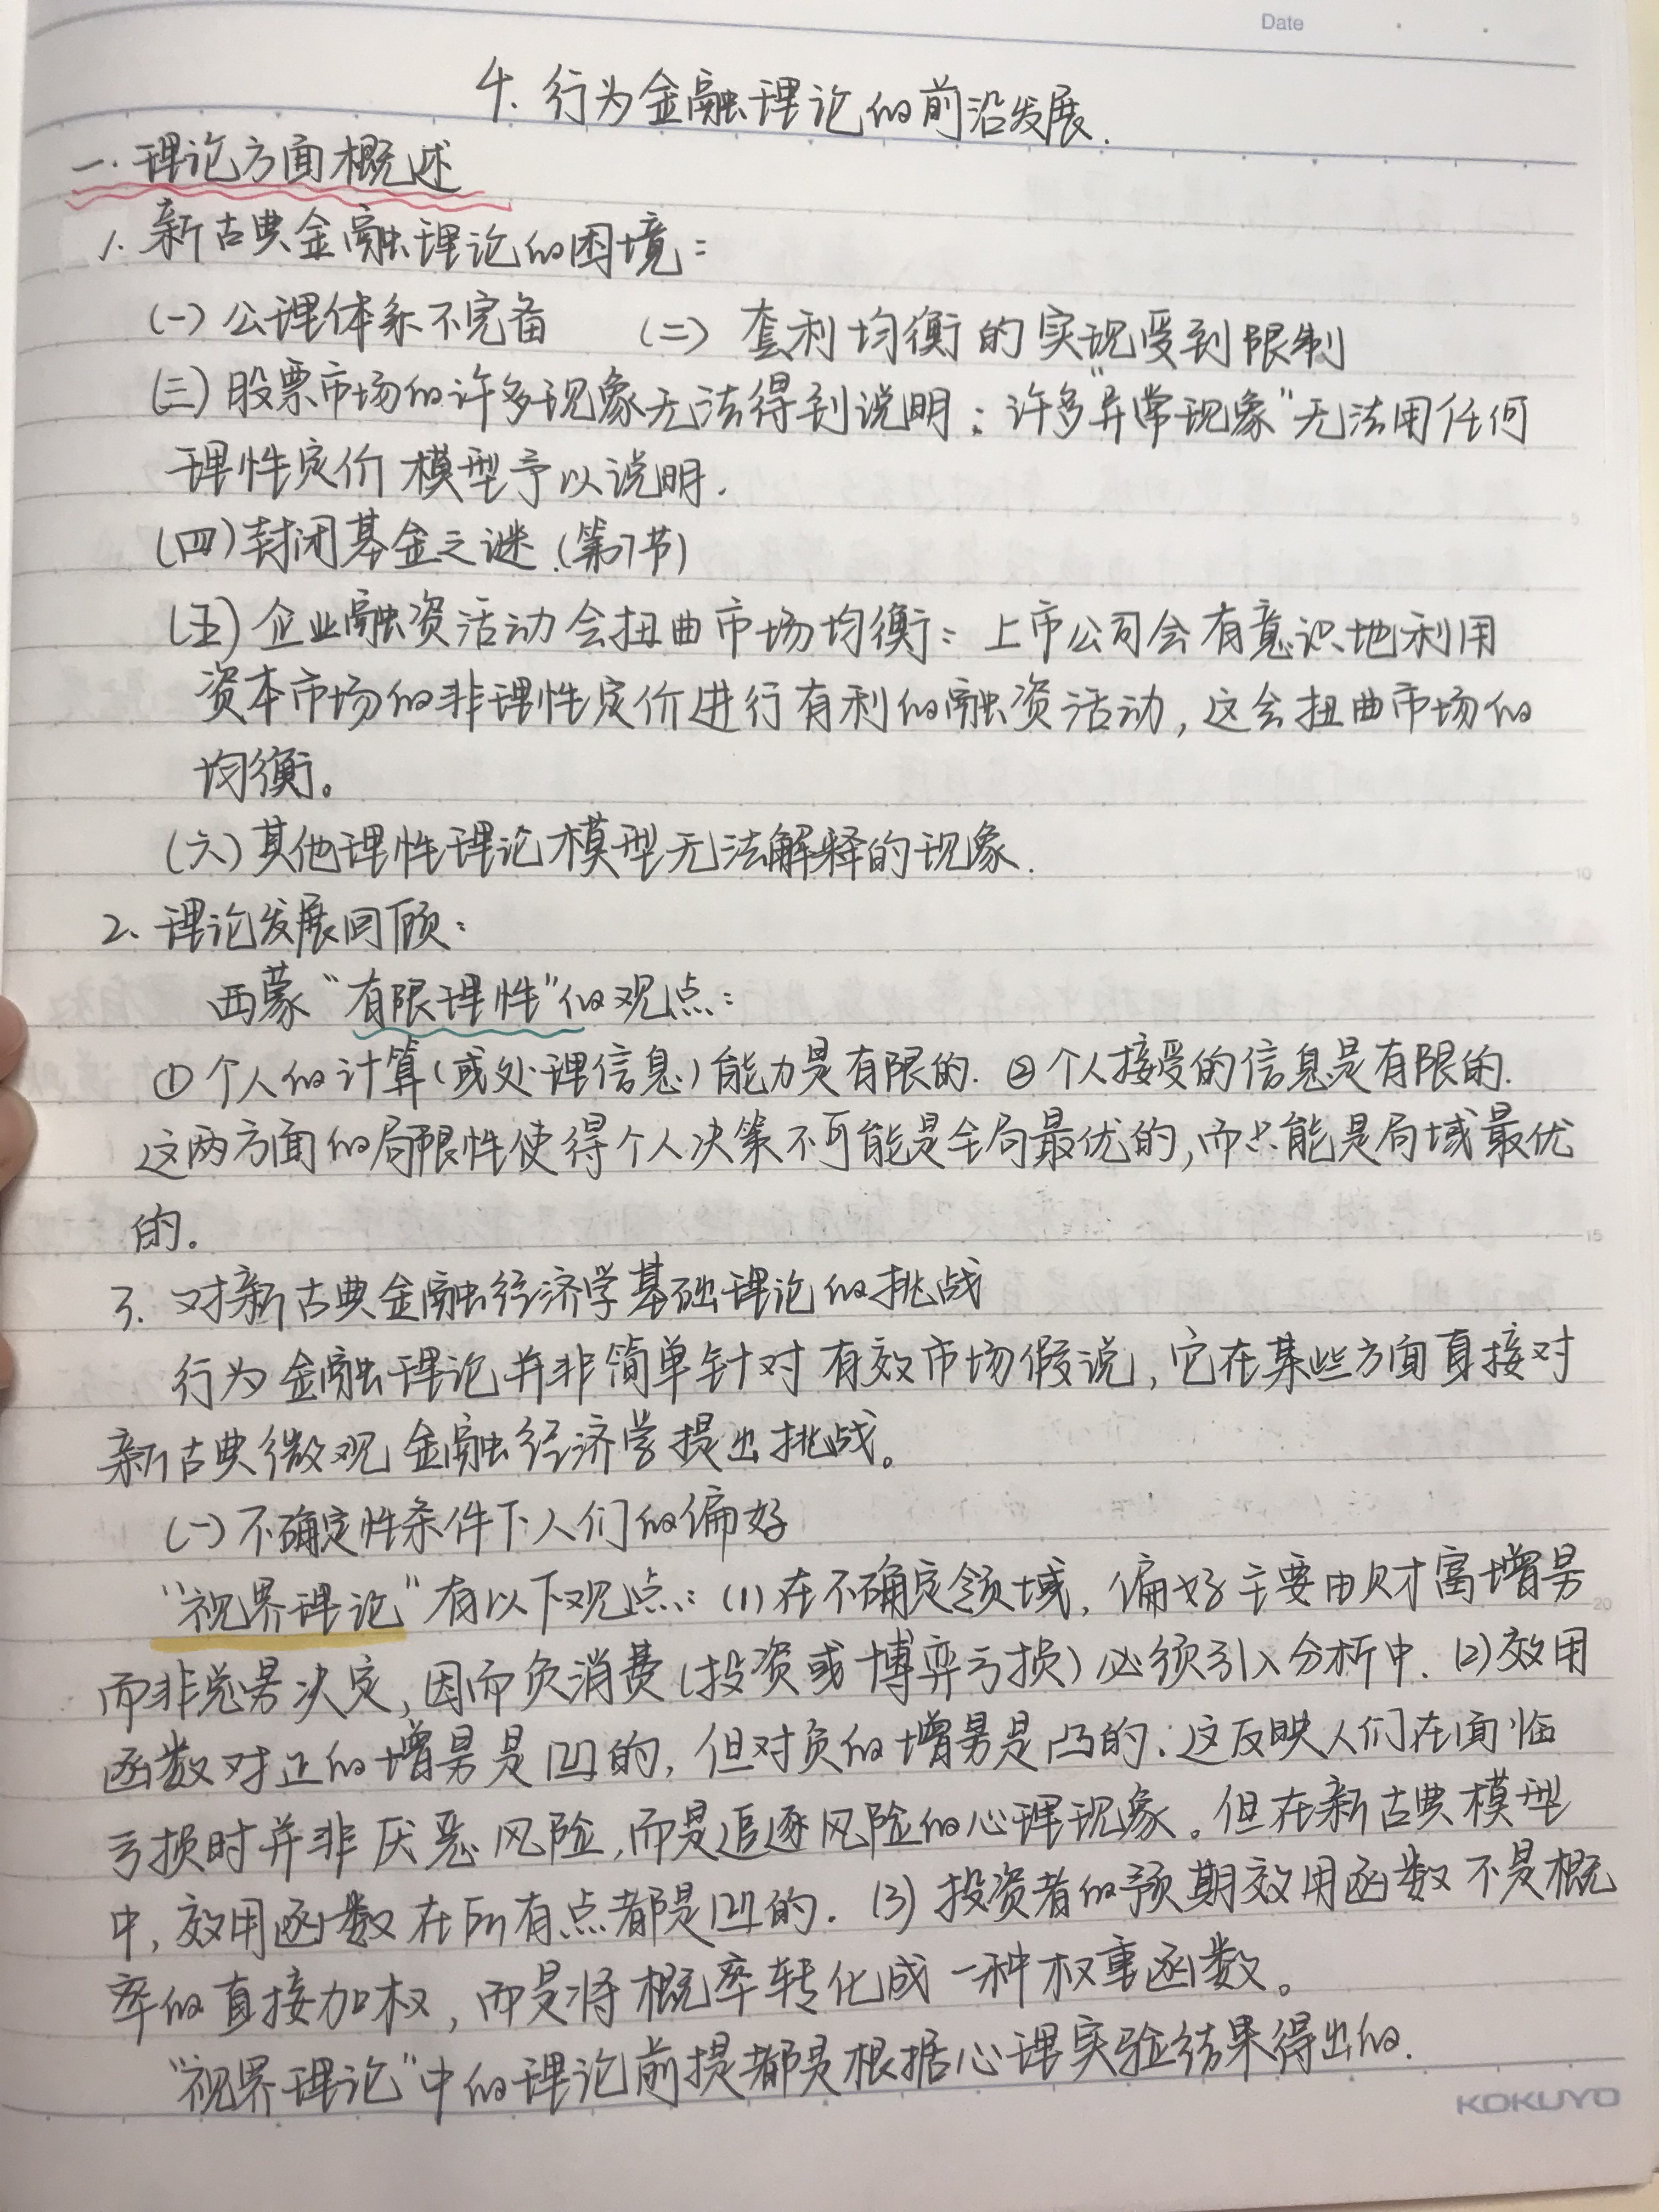 Date
4. 行为金融理论的前沿发展.
一. 理论方面概述
1. 新古典金融理论的困境:
(一) 公理体系不完备 (二) 套利均衡的实现受到限制
(三) 股票市场的许多现象无法得到说明: 许多"异常现象"无法用任何
理性定价模型予以说明.
(四) 封闭基金之谜.(第7节)
(五) 企业融资活动会扭曲市场均衡: 上市公司会有意识地利用
资本市场的非理性定价进行有利的融资活动, 这会扭曲市场的
均衡。
(六) 其他理性理论模型无法解释的现象.
2. 理论发展回顾:
西蒙"有限理性"的观点:
① 个人的计算(或处理信息)能力是有限的. ② 个人接受的信息是有限的.
这两方面的局限性使得个人决策不可能是全局最优的, 而只能是局域最优
的。
3. 对新古典金融经济学基础理论的挑战
行为金融理论并非简单针对有效市场假说, 它在某些方面直接对
新古典微观金融经济学提出挑战。
(一) 不确定性条件下人们的偏好
"视界理论"有以下观点: (1) 在不确定领域, 偏好主要由财富增量
而非总量决定, 因而负消费(投资或博弈亏损)必须引入分析中. (2) 效用
函数对正的增量是凹的, 但对负的增量是凸的. 这反映人们在面临
亏损时并非厌恶风险, 而是追逐风险的心理现象。但在新古典模型
中, 效用函数在所有点都是凹的. (3) 投资者的预期效用函数不是概
率的直接加权, 而是将概率转化成一种权重函数。
"视界理论"中的理论前提都是根据心理实验结果得出的.
5
10
15
20
KOKUYO